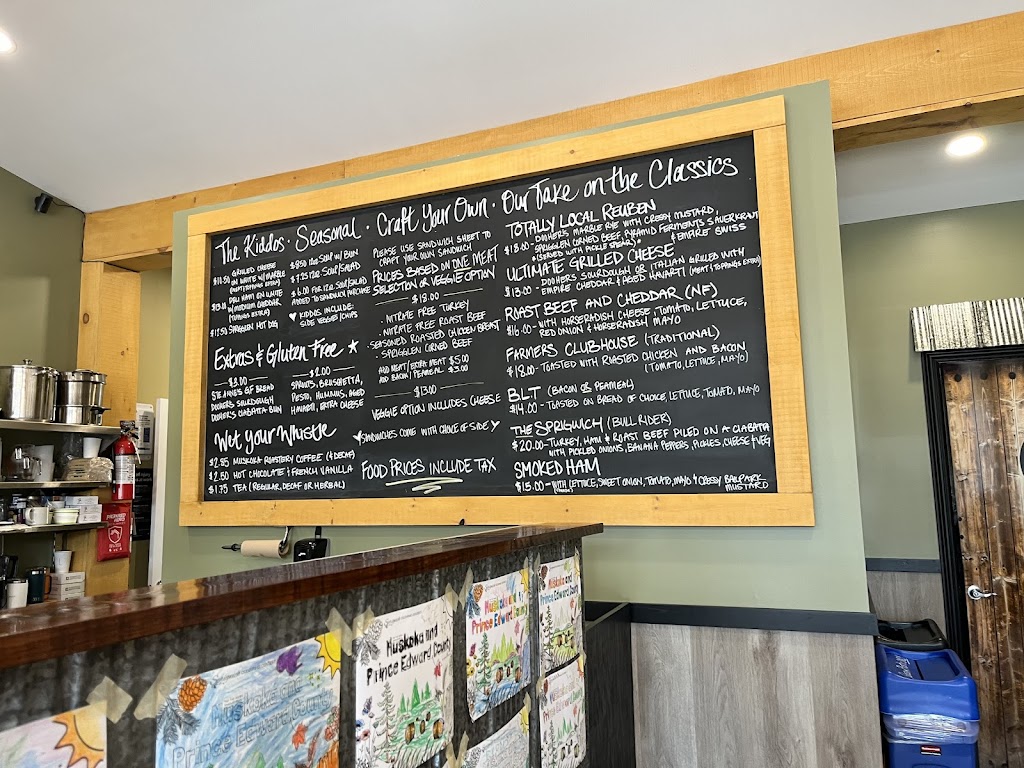 The Kiddos · Seasonal · Craft Your Own · Our Take on the Classics
GRILLED CHEESE
$10.50 ON WHITE W/ MARBLE
(MEAT/TOPPINGS EXTRA)
DELI HAM ON WHITE
W/ MEDIUM CHEDDAR
(TOPPINGS EXTRA)
SPRIGGLEN HOT DOG
$8.50 12oz SOUP W/ BUN
$7.25 12oz SOUP/SALAD
$6.00 FOR 12oz SOUP/SALAD
ADDED TO SANDWICH PURCHASE
♥ KIDDOS INCLUDE
SIDE VEGGIES/CHIPS
Extras & Gluten Free ★
$3.00
STE. ANNE'S GF BREAD
DOOHER'S SOURDOUGH
DOOHER'S CIABATTA BUN
$2.00
SPROUTS, BRUSCHETTA,
PESTO, HUMMUS, AGED
HAVARTI, EXTRA CHEESE
Wet your Whistle
$2.95 MUSKOKA ROASTERY COFFEE (& DECAF)
$2.50 HOT CHOCOLATE & FRENCH VANILLA
$1.75 TEA (REGULAR, DECAF OR HERBAL)
PLEASE USE SANDWICH SHEET TO
CRAFT YOUR OWN SANDWICH
PRICES BASED ON ONE MEAT
SELECTION OR VEGGIE OPTION
$18.00
- NITRATE FREE TURKEY
- NITRATE FREE ROAST BEEF
- SEASONED ROASTED CHICKEN BREAST
- SPRIGGLEN CORNED BEEF
ADD MEAT/EXTRA MEAT $5.00
ADD BACON/PEAMEAL $3.00
$13.00
VEGGIE OPTION INCLUDES CHEESE
♥SANDWICHES COME WITH CHOICE OF SIDE♥
FOOD PRICES INCLUDE TAX
TOTALLY LOCAL REUBEN
$18.00 - DOOHER'S MARBLE RYE WITH CRESSY MUSTARD,
SPRIGGLEN CORNED BEEF, PYRAMID FERMENTS SAUERKRAUT
*(SERVED WITH PICKLE SPEAR)* & EMPIRE SWISS
ULTIMATE GRILLED CHEESE
$13.00 - DOOHERS SOURDOUGH OR ITALIAN GRILLED WITH
EMPIRE CHEDDAR & AGED HAVARTI (MEAT/TOPPINGS EXTRA)
ROAST BEEF AND CHEDDAR (NF)
$16.00 - WITH HORSERADISH CHEESE, TOMATO, LETTUCE,
RED ONION & HORSERADISH MAYO
FARMERS CLUBHOUSE (TRADITIONAL)
$18.00 - TOASTED WITH ROASTED CHICKEN AND BACON
(TOMATO, LETTUCE, MAYO)
BLT (BACON OR PEAMEAL)
$14.00 - TOASTED ON BREAD OF CHOICE, LETTUCE, TOMATO, MAYO
THE SPRIGWICH (BULL RIDER)
$20.00 - TURKEY, HAM & ROAST BEEF PILED ON A CIABATTA
WITH PICKLED ONIONS, BANANA PEPPERS, PICKLES, CHEESE & VEG
SMOKED HAM
$15.00 - WITH LETTUCE, SWEET ONION, TOMATO, MAYO & CRESSY BALLPARK
MUSTARD
Muskoka and
Prince Edward County
Muskoka and
Prince Edward County
Muskoka and
Prince Edward County
Muskoka and
Prince Edward County